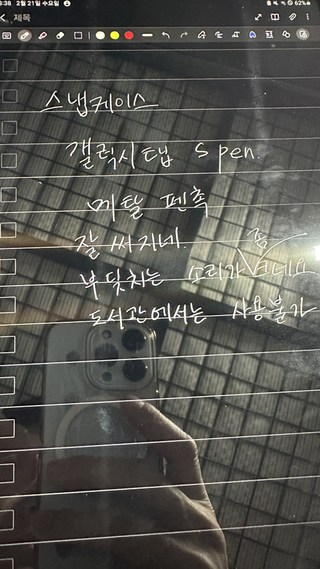 :38 2월 21일 수요일 62%
제목
스냅케이스
갤럭시탭 S pen.
메탈 펜촉
잘 써지네.
부딪치는 소리가 좀 나네요
도서관에서는 사용불가